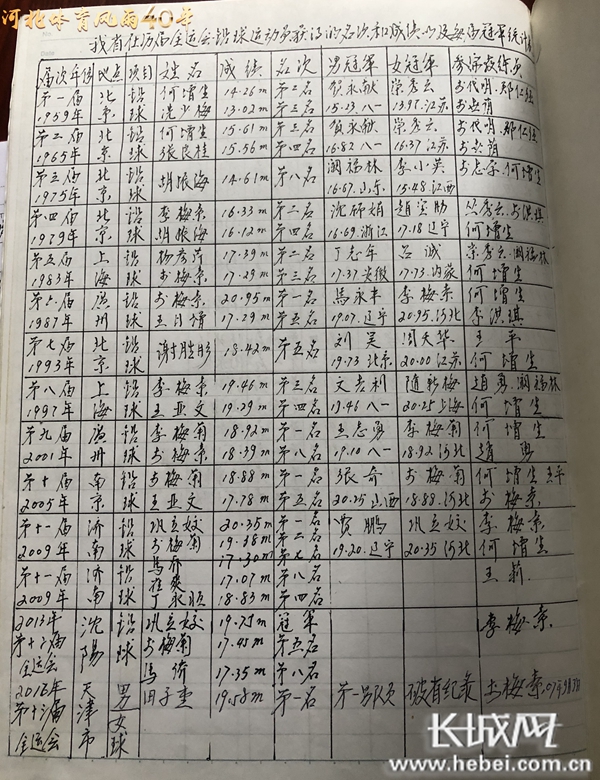 河北体育风雨40年
我省在历届全运会铅球运动员获得的名次和成绩以及每届冠军统计表
届次年份 地点 项目 姓名 成绩 名次 男冠军 女冠军 参宗教练员
第一届 北 铅 何增生 14.26m 第二名 贺永献 荣秀云
1959年 京 球 冼少梅 13.02m 第三名 15.23 八一 13.95 江苏
第二届 北 铅 何增生 15.61m 第三名 贺永献 荣秀云
1965年 京 球 张良桂 15.56m 第四名 16.82 八一 16.37 江苏
第三届 北 铅 胡振海 14.61m 第八名 阚福林 李小英 何增生
1975年 京 球 16.67 山东 15.48 江西
第四届 北 铅 李梅素 16.33m 第二名 沈硕娟 赵宝勋
1979年 京 球 胡振海 16.12m 第四名 16.69 浙江 17.18 辽宁 何增生
第五届 上 铅 17.39m 第二名 丁志年 吕诚 阚福林
1983年 海 球 李梅素 17.29m 第三名 17.37 安徽 17.73 内蒙 何增生
第六届 广 铅 李梅素 20.95m 第一名 马永丰 李梅素 何增生
1987年 州 球 17.29m 第五名 19.07 辽宁 20.95 河北 李洪琪
第七届 北 铅 谢胜彤 18.42m 第五名 刘昊 周天华 王平
1993年 京 球 19.73 北京 20.00 江苏 何增生
第八届 上 铅 李梅素 19.46m 第三名 文老利 随新梅 赵勇 阚福林
1997年 海 球 王亚文 19.29m 第四名 19.46 八一 20.25 上海 何增生
第九届 广 铅 李梅菊 18.92m 第一名 王志勇 李梅菊 何增生
2001年 州 球 李梅素 18.39m 第八名 19.10 八一 18.92 河北 赵勇
第十届 南 铅 李梅菊 18.88m 第一名 张奇 李梅菊 何增生 王平
2005年 京 球 王亚文 17.78m 第五名 20.25 山西 18.88 河北 李梅素
第十一届 济 铅 巩立姣 20.35m 第一名 贾鹏 巩立姣 李梅素
2009年 南 球 李梅菊 19.38m 第二名 19.20 辽宁 20.35 河北 何增生
马乔 17.30m 第七名
第十一届 济 铅 17.07m 第八名 王莉
2009年 南 球 丁永顺 18.83m 第四名
2013年 沈 铅 巩立姣 19.75m 冠军 李梅素
第十二届 阳 球 李梅菊 17.45m 第五名
全运会 马侨 17.35m 第八名
天 男 田子重 19.58m 第一名 破省纪录 李梅素
津 女
全运会 市 球
长城网
www.hebei.com.cn